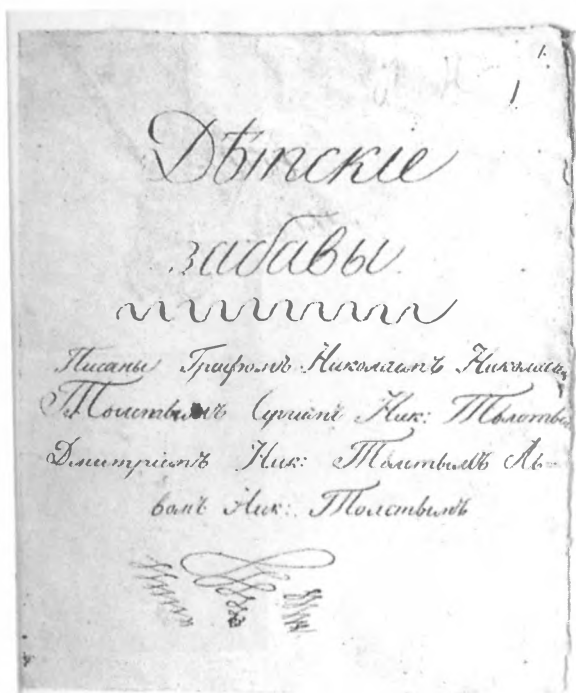 1.
1
Дѣтскіе
забавы
Писаны Графомъ Николаемъ Николаев
Толстымъ Сергѣемъ Ник: Толстым
Дмитріемъ Ник: Толстымъ Ль-
вомъ Ник: Толстымъ